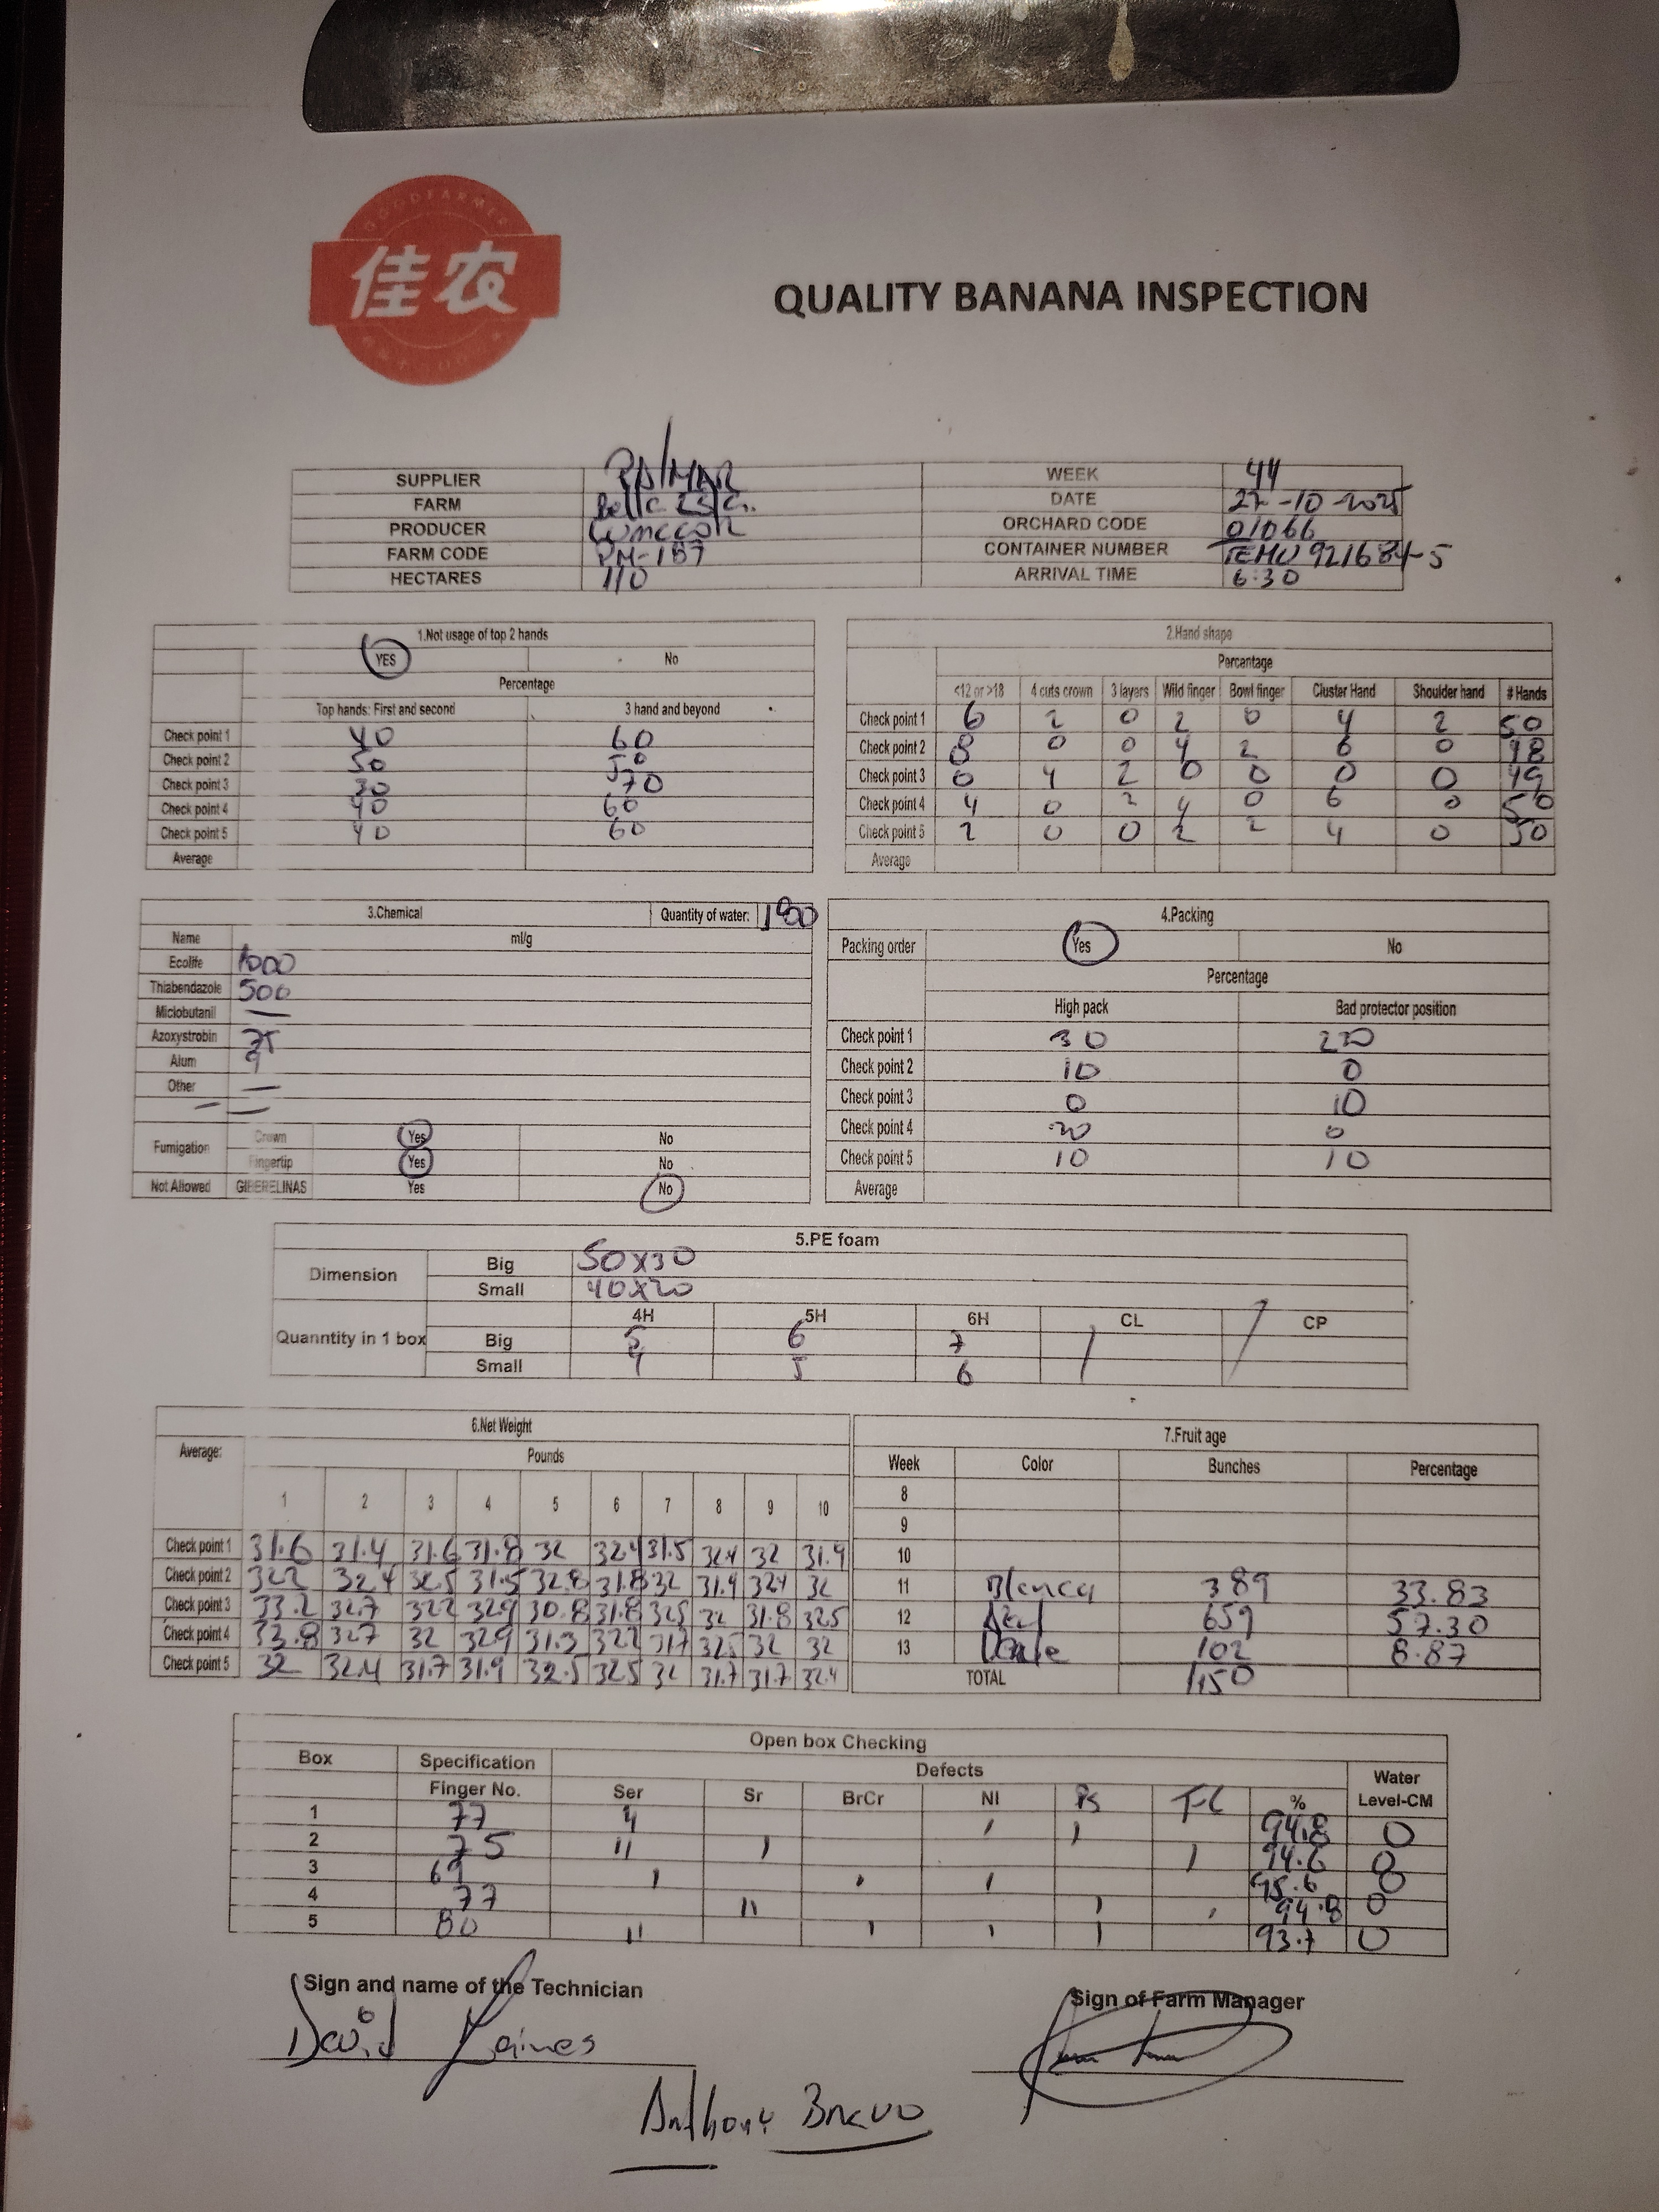 GOODFARMER
佳农
QUALITY BANANA INSPECTION
SUPPLIER PALMAR WEEK 44
FARM Bella DATE 27-10-2025
PRODUCER ORCHARD CODE 01066
FARM CODE PM-187 CONTAINER NUMBER TEMU 921684-5
HECTARES 110 ARRIVAL TIME 6:30
1.Not usage of top 2 hands
YES No
Percentage
Top hands: First and second 3 hand and beyond
Check point 1 40 60
Check point 2 50 50
Check point 3 30 70
Check point 4 40 60
Check point 5 40 60
Average
2.Hand shape
Percentage
<12 or >18 4 cuts crown 3 layers Wild finger Bowl finger Cluster Hand Shoulder hand # Hands
Check point 1 6 2 0 2 0 4 2 50
Check point 2 8 0 0 4 2 6 0 48
Check point 3 0 4 2 0 0 0 0 49
Check point 4 4 0 2 4 0 6 0 50
Check point 5 2 0 0 2 2 4 0 50
Average
3.Chemical Quantity of water:
Name ml/g
Ecolife 1000
Thiabendazole 500
Miclobutanil —
Azoxystrobin 75
Alum 9
Other —
— —
Fumigation Crown Yes No
Fingertip Yes No
Not Allowed GIBERELINAS Yes No
4.Packing
Packing order Yes No
Percentage
High pack Bad protector position
Check point 1 30
Check point 2 10 0
Check point 3 0 10
Check point 4 20 0
Check point 5 10 10
Average
5.PE foam
Dimension Big 50x30
Small 40x20
4H 5H 6H CL CP
Quanntity in 1 box Big 5 6 7
Small 4 5 6
6.Net Weight
Average: Pounds
1 2 3 4 5 6 7 8 9 10
Check point 1 31.6 31.4 31.6 31.8 32 32.4 31.5 32.4 32 31.9
Check point 2 322 32.4 32.5 31.5 32.8 31.8 32 31.9 324 32
Check point 3 33.2 32.7 322 329 30.8 31.8 325 32 31.8 325
Check point 4 33.8 327 32 329 31.3 322 317 325 32 32
Check point 5 32 32.4 31.7 31.9 32.5 325 32 31.7 31.7 32.4
7.Fruit age
Week Color Bunches Percentage
8
9
10
11 Blanca 389 33.83
12 Azul 659 57.30
13 102 8.87
TOTAL 1150
Open box Checking
Box Specification Defects Water
Finger No. Ser Sr BrCr NI Ps % Level-CM
1 77 ı ı 94.8 0
2 75 ıı ı ı 94.6 0
3 69 ı ı ı 95.6 0
4 77 ıı ı ı 94.8 0
5 80 ıı ı ı ı 93.7 0
Sign and name of the Technician Sign of Farm Manager
David
Anthony Bravo